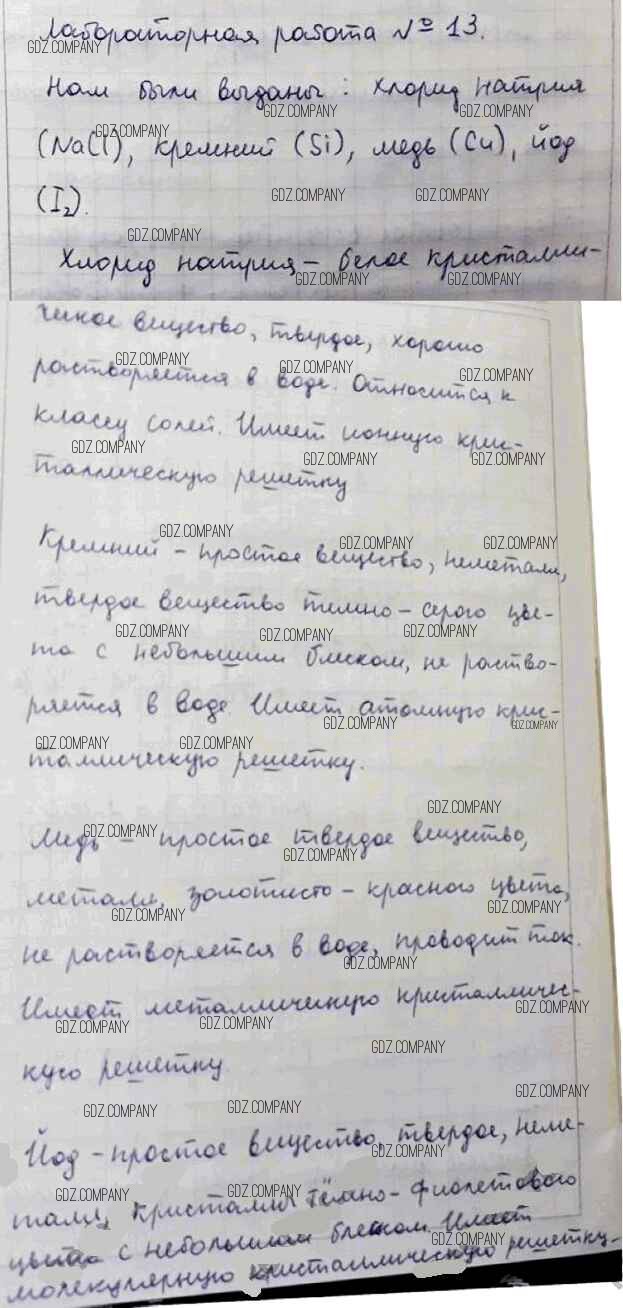 Лабораторная работа № 13.
Нам были выданы: хлорид натрия
(NaCl), кремний (Si), медь (Cu), йод
(I₂).
Хлорид натрия – белое кристалли-
ческое вещество, твердое, хорошо
растворяется в воде. Относится к
классу солей. Имеет ионную крис-
таллическую решетку
Кремний – простое вещество, неметалл,
твердое вещество темно-серого цве-
та с небольшим блеском, не раство-
ряется в воде. Имеет атомную крис-
таллическую решетку.
Медь – простое твердое вещество,
металл, золотисто-красного цвета,
не растворяется в воде, проводит ток.
Имеет металлическую кристалличес-
кую решетку
Йод – простое вещество, твердое, неме-
талл, кристаллы тёмно-фиолетового
цвета с небольшим блеском. Имеет
молекулярную кристаллическую решетку.
GDZ.COMPANY